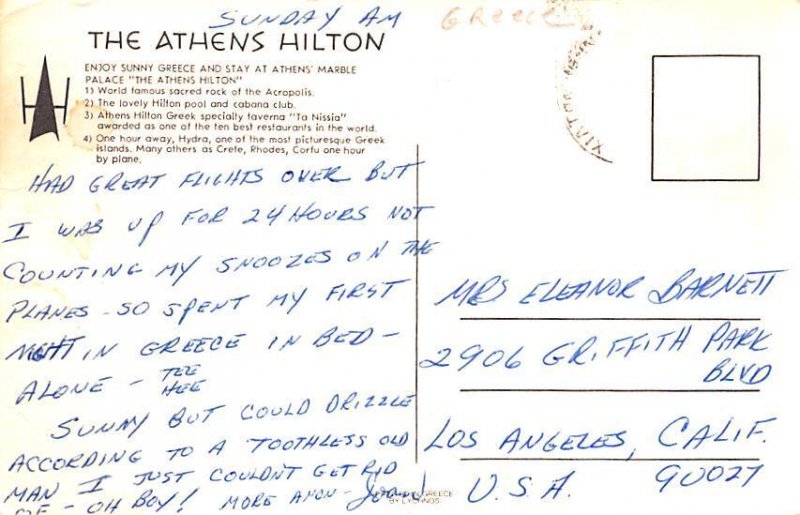 SUNDAY AM
Greece
THE ATHENS HILTON
ENJOY SUNNY GREECE AND STAY AT ATHENS' MARBLE
PALACE "THE ATHENS HILTON"
1) World famous sacred rock of the Acropolis.
2) The lovely Hilton pool and cabana club.
3) Athens Hilton Greek specialty taverna "Ta Nissia"
awarded as one of the ten best restaurants in the world.
4) One hour away, Hydra, one of the most picturesque Greek
islands. Many others as Crete, Rhodes, Corfu one hour
by plane.
HAD GREAT FLIGHTS OVER BUT
I WAS UP FOR 24 HOURS NOT
COUNTING MY SNOOZES ON THE
PLANES - SO SPENT MY FIRST
NIGHT IN GREECE IN BED -
ALONE - TEE
HEE
SUNNY BUT COULD DRIZZLE
ACCORDING TO A TOOTHLESS OLD
MAN I JUST COULDN'T GET RID
OF - OH BOY! MORE ANON -
MRS ELEANOR BARNETT
2906 GRIFFITH PARK
BLVD
LOS ANGELES, CALIF.
U.S.A. 90027
GREECE